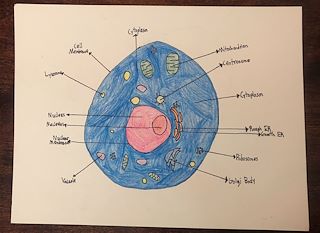 Cytoplasm
Cell
Membrane
Mitochondrion
Centrosome
Lysosome
Cytoplasm
Nucleus
Nucleolus
Rough ER
Smooth ER
Nuclear
Membrane
Ribosomes
Vacuole
Golgi Body